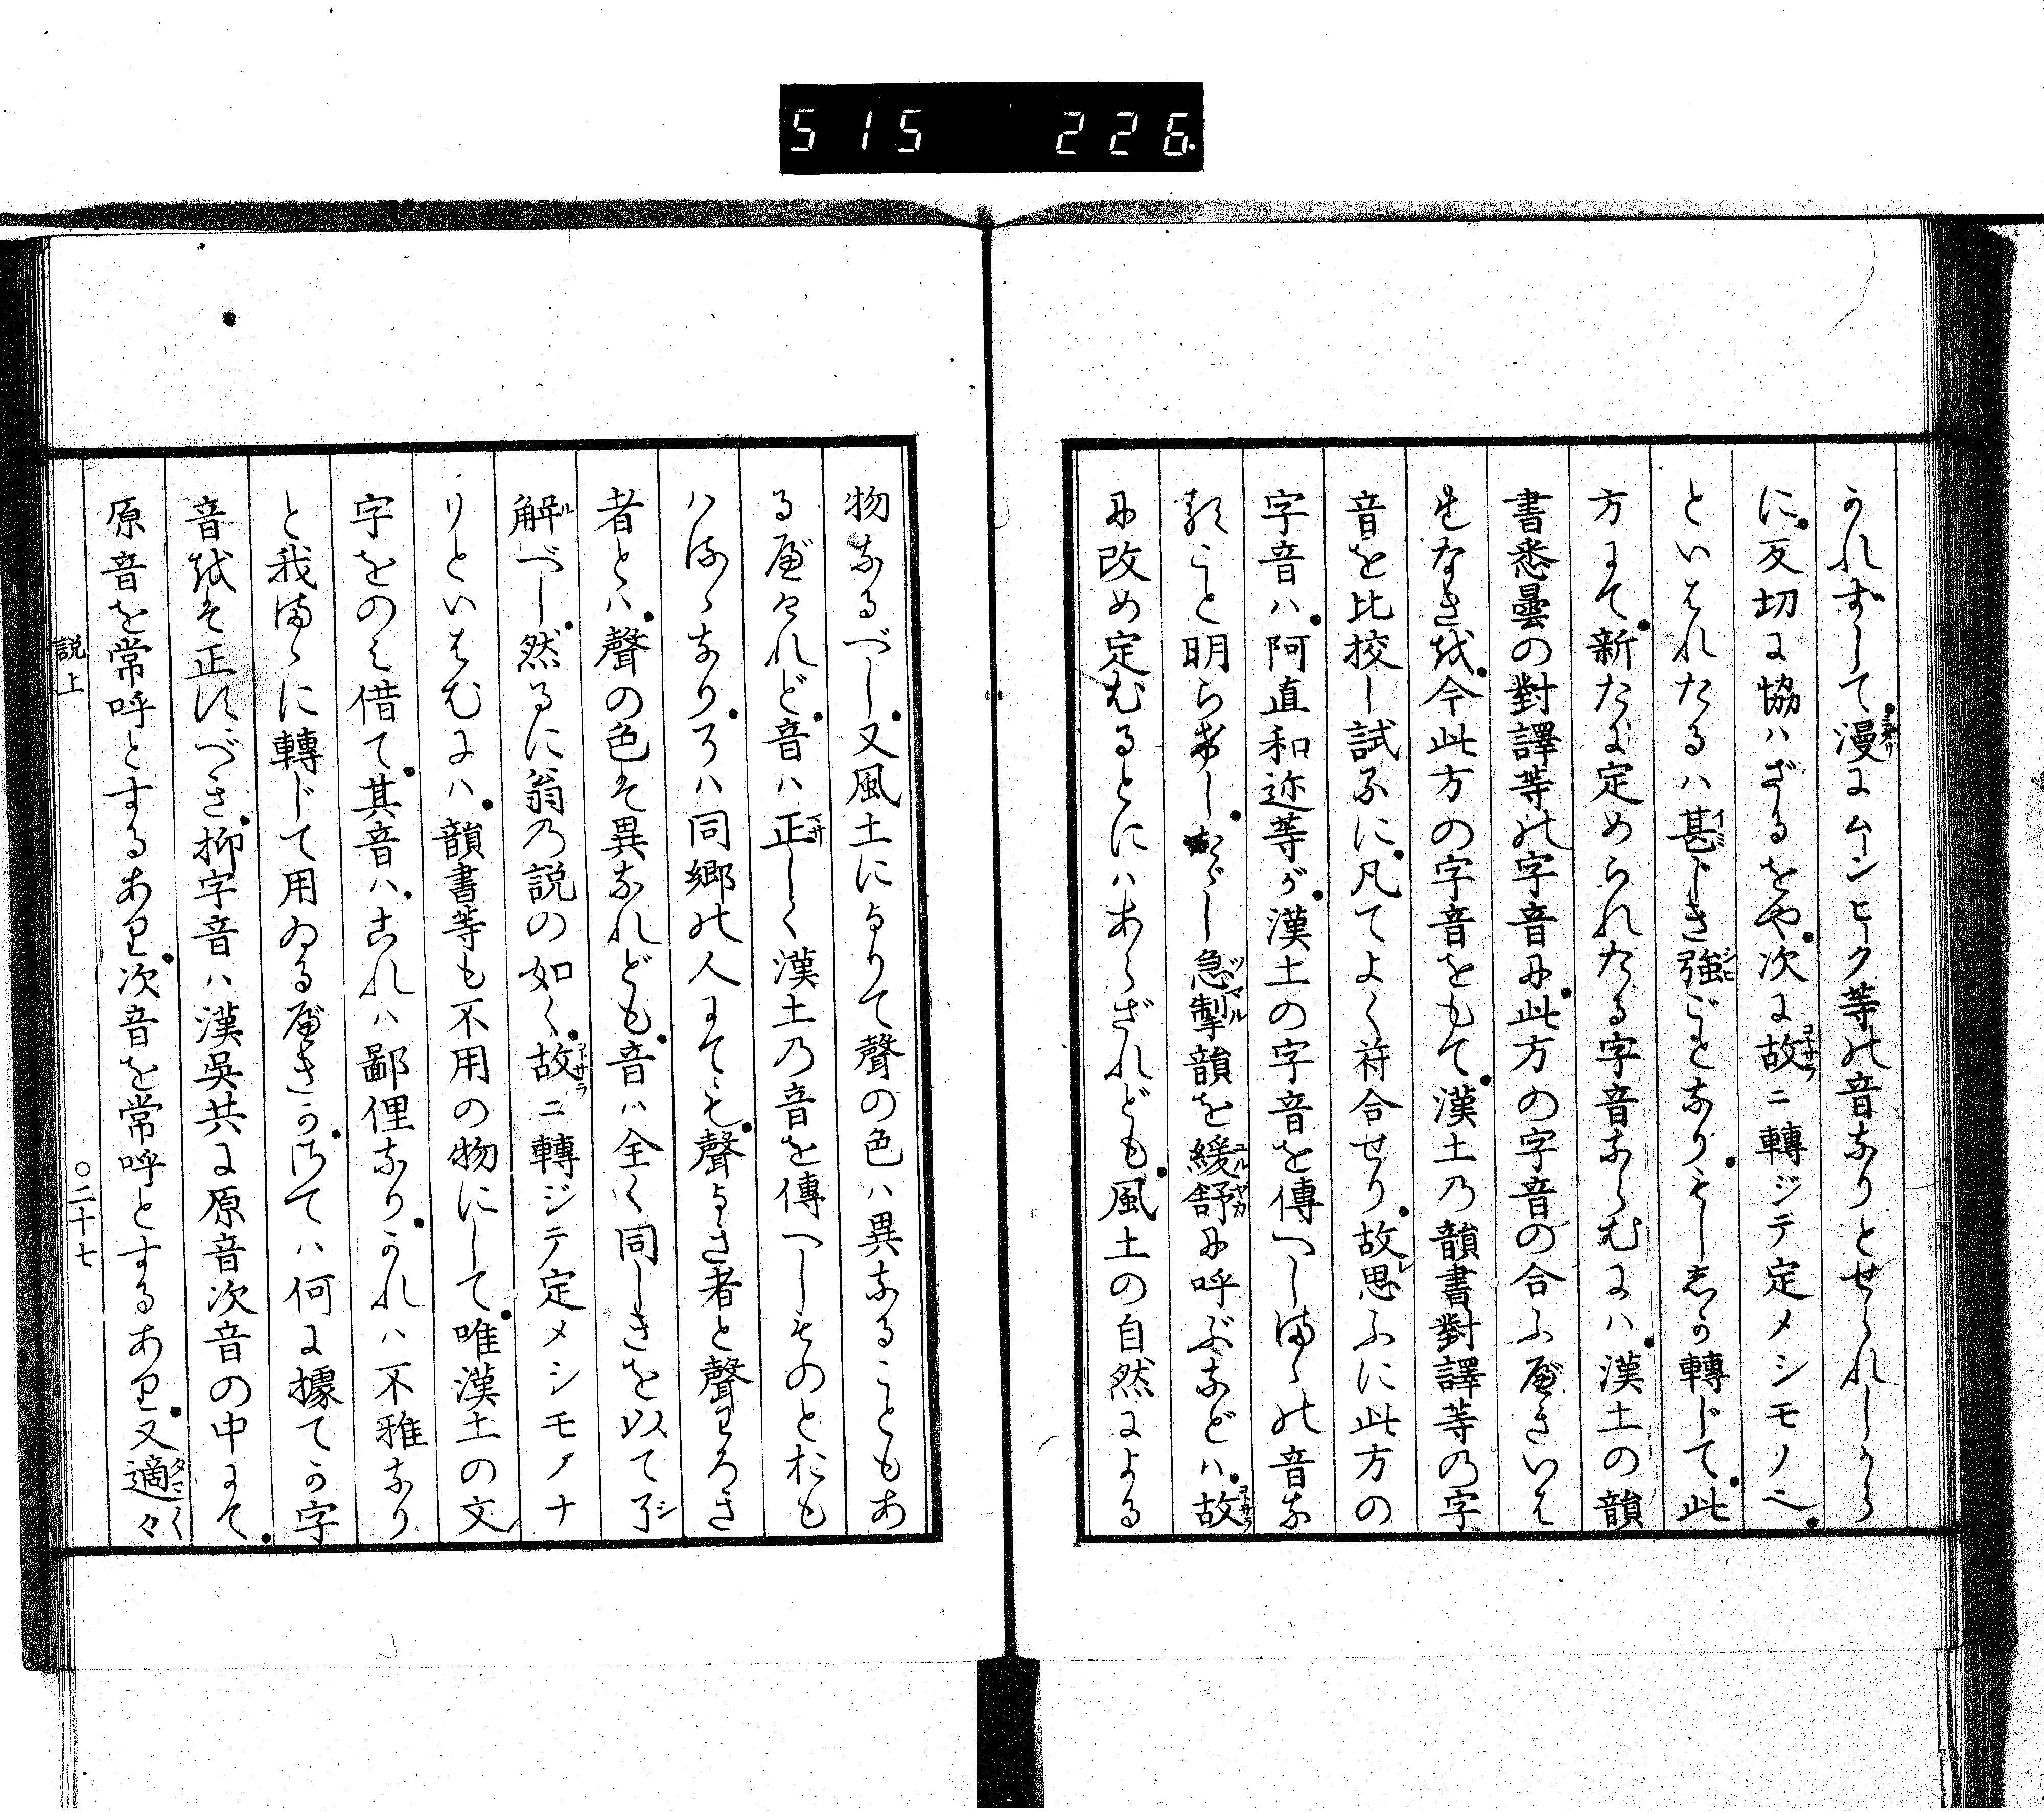 515 226.
うれずして漫にムーンヒーク等の音なりとせられしから
に反切に協ハざるをや次に故ニ轉ジテ定メシモノヘ
といはれたるハ甚じき強ごとなりもししか轉じて此
方にて新たに定められたる字音ならむにハ漢土の韻
書悉曇の對譯等の字音に此方の字音の合ふべきいは
れなきを今此方の字音をもて漢土の韻書對譯等の字
音を比校し試るに凡てよく符合せり故思ふに此方の
字音ハ阿直和迩等が漢土の字音を傳へしまゝの音な
ること明らけしたゞし急掣韻を緩舒に呼ぶなどハ故
に改め定むるとにハあらざれども風土の自然による
物なるべし又風土によりて聲の色ハ異なることもあ
るべけれど音ハ正しく漢土の音を傳へしそのとおも
ハるゝなりそハ同郷の人にても聲よき者と聲わろき
者とハ聲の色そ異なれども音ハ全く同しきを以て了
解べし然るに翁の説の如く故ニ轉ジテ定メシモノナ
りといはむにハ韻書等も不用の物にして唯漢土の文
字をのみ借て其音ハこれハ鄙俚なりかれハ不雅なり
と我まゝに轉じて用ゐるべきかさてハ何に據てか字
音をそ正すべき抑字音ハ漢吳共に原音次音の中にて
原音を常呼とするあり次音を常呼とするあり又適々
説上
〇二十七